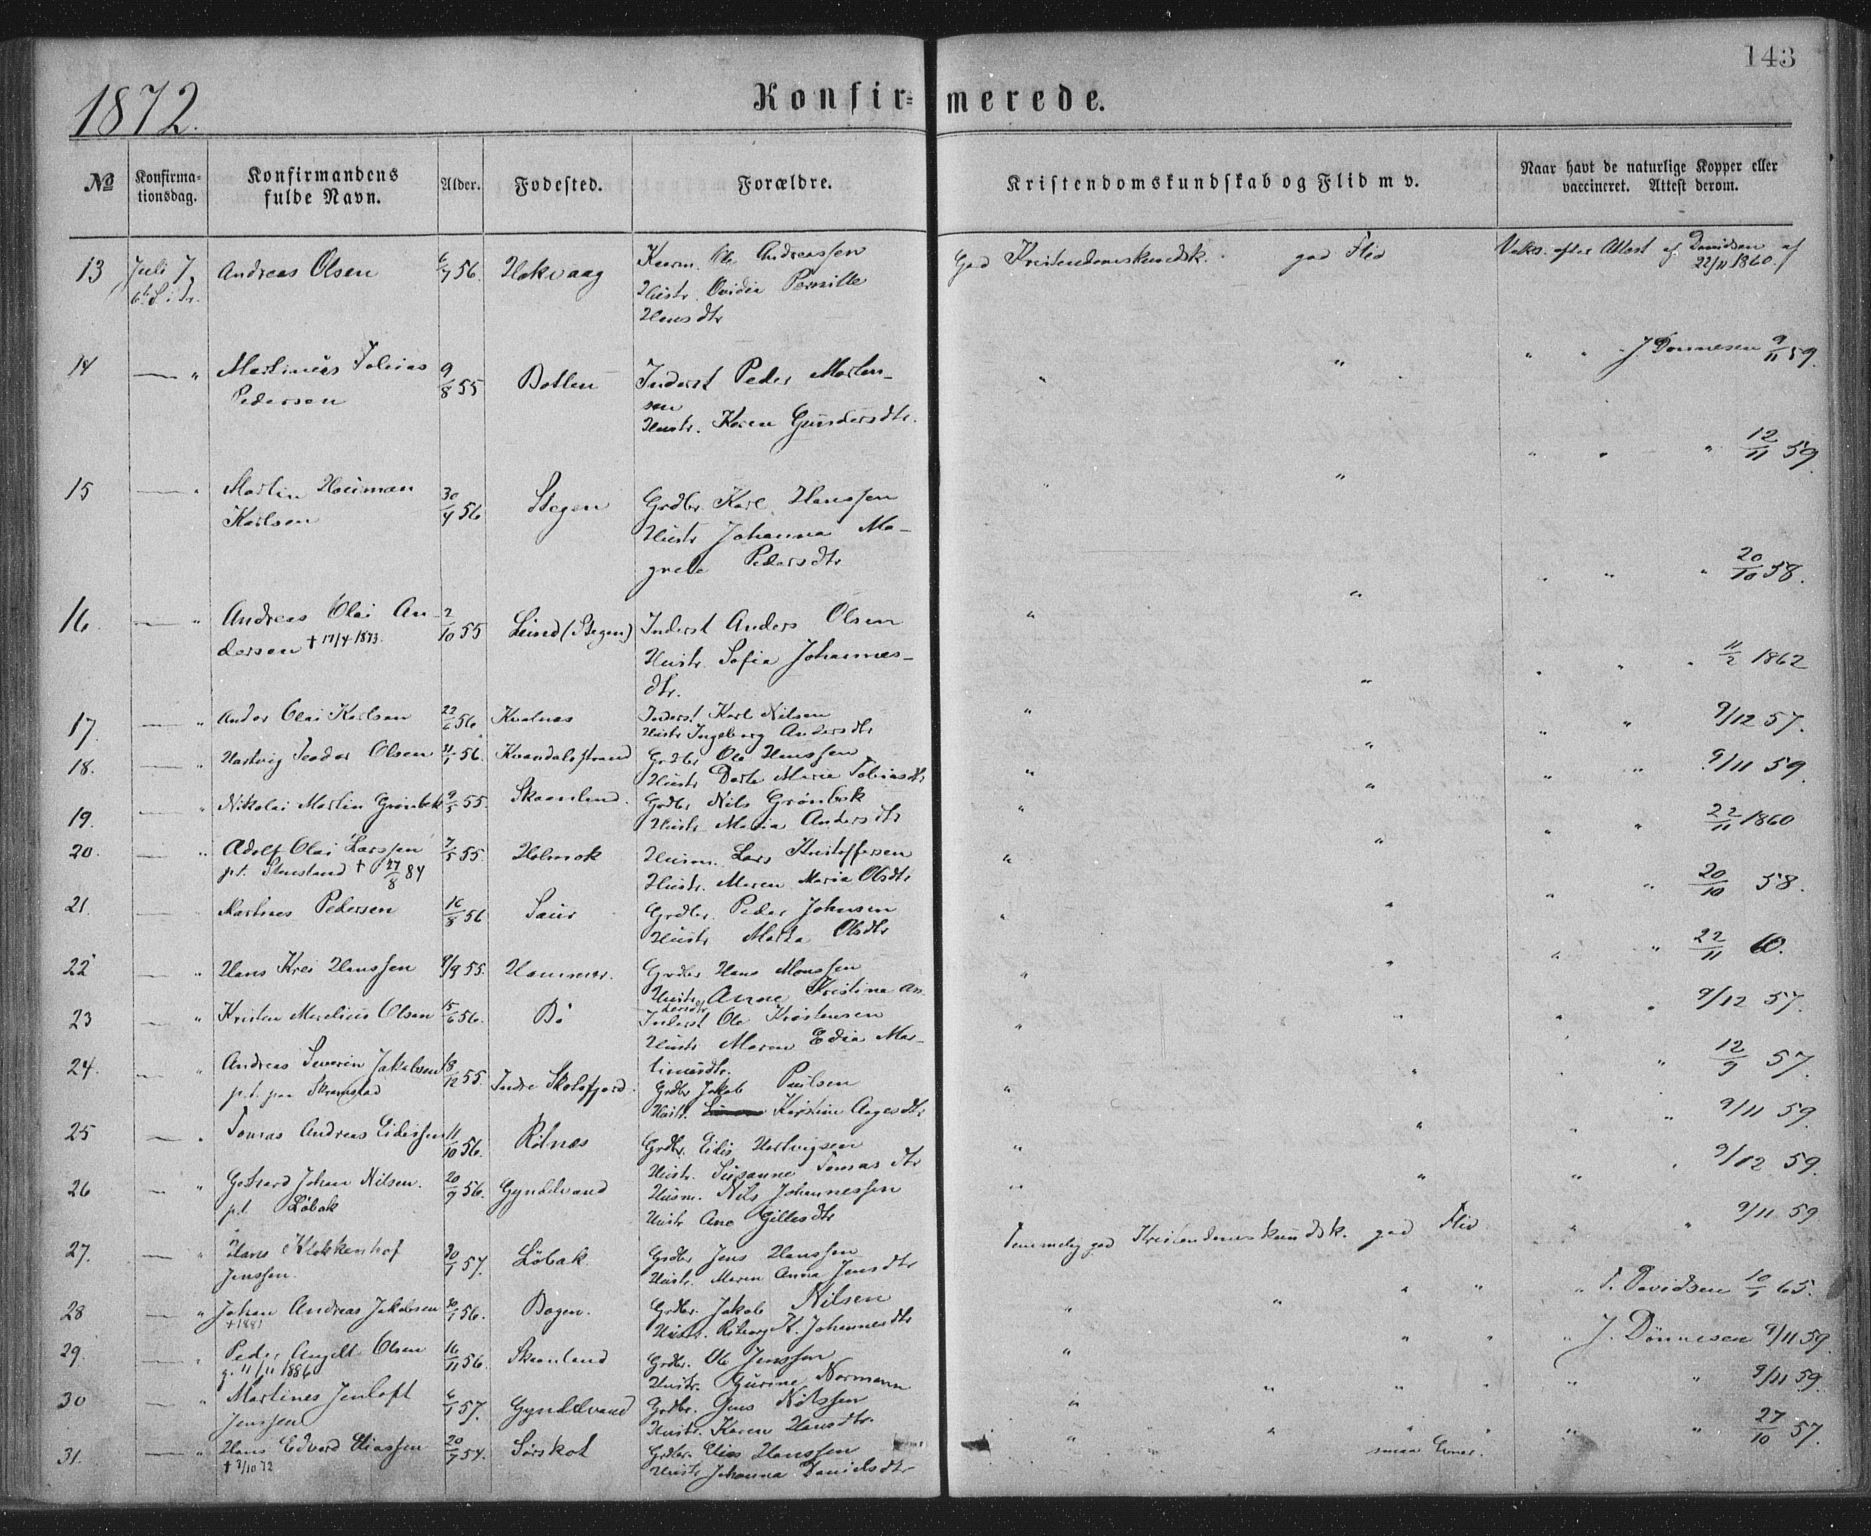 143
1872.
Konfir= merede.
No
Konfirma-
tionsdag.
Konfirmandens
fulde Navn.
Alder.
Fødested.
Forældre.
Kristendomskundskab og Flid m v.
Naar havt de naturlige Kopper eller
vaccineret. Attest derom.
13 Juli 7 Andreas Olsen 6/7 56. Hokvaag Ole Andreassen God Kristendomskundsk. god Flid Vaks. efter Attest af Davidsen af
22/11 1860.
Hustr. Ovidia Pernille
Hansdtr
14 — " Martinus Tobias 9/8 55 Botten Inderst Peder Morten- " " " " J Dønnesen 9/11 59.
Pedersen sen
Hustr. Karen Gundersdtr.
15 — " Martin Karlsen 30/4 56 Stegen Grdbr. Karl Hanssen " " " " " 12/11 59.
Hustr Johanna Ma-
grete Pedersdtr
16. — " Andreas Olai An- 2/10 55 Leind (Stegen) Inderst Anders Olsen " " " " " 20/10 58.
dersen † 17/4 1873.
Hustr. Sofia Johannes-
dtr.
17. — " Andor Olai Karlsen 22/6 56 Kvalnes Inderst Karl Nilsen " " " " " 11/2 1862
Hustr Ingeborg Andersdtr
18. — " Hartvig Teodor Olsen 56. Kvandalsstrand Grdbr Ole Hanssen " " " " 9/12 57.
Hustr Dorte Maria Tobiasdtr
19. " Nikolai Martin Grønbek 9/5 55. Skaanland. Grdbr Nils Grønbek " " " " 9/11 59.
Hustr Maria Andersdtr
20. " Adolf Olai Larssen 7/5 55 Holmok Husm. Lars Kristoffersen " " " " 22/11 1860
pt. † 27/8 84
Hustr. Maren Maria Olsdtr
21. — Martines Pedersen 16/8 56 Saur Grdbr. Peder Johnsen " " " " 20/10 58.
Hustr Marta Olsdtr
22 — " Hans Krei Hanssen 9/9 55. Hammer. Grdbr Hans Monssen " " " " 22/11 60.
Hustr Anne Kristina An-
dersdtr
23 — " Kristen Olsen 15/6 56. Bø Inderst Ole Kristensen " " " " 9/12 57.
Hustr Maren Edia Mar-
tinusdtr.
24. — " Andreas Severin Jakobsen 18/12 55. Indre Skotsfjord. Grdbr Jakob Paulsen " " " 12/9 57.
p.t. paa
Hustr. Kirstine Aagesdtr
25 — " Tomas Andreas Eidissen 11/10 56. Røtnæs Grdbr. Eidis Hartvigsen " " " 9/11 59.
Hustr. Susanne Tomasdtr
26 — " Gothard Johan Nilsen. 20/9 56. Gyndelvand Husm. Nils Johannessen " " " " 9/12 59.
pt Løbak
Hustr Ane Gillesdtr
27. — " Hans Klokkenhof 30/1 57. Løbak Grdbr Jens Hanssen Temmelig god Kristendomskundsk. god Flid " " 9/11 59
Jenssen.
Hustr. Maren Anna Jensdtr
28 — " Johan Andreas Jakobsen 56. Bogen. Grdbr. Jakob Nilsen " " " " " T. Davidsen 10/1 65.
† 1881
Hustr. Johannesdtr
29. — " Peder Angell Olsen 16/11 56. Skaanland Grdbr. Ole Jenssen " " " " J. Dønnesen 9/11 59.
g. 11/11 1886
Hustr. Gurine Normann
30 — " Martines Jentoft 6/1 57. Gyndelvand Grdbr. Jens Nilssen " " " " " " 9/11 59.
Jenssen
Hustr. Karen Hansdtr.
31. — " Hans Edvard Eliassen 20/9 54. Sørskot Grdbr. Elias Hanssen " " " smaa Evner. " " 27/10 57.
† 9/10 72
Hustr Johanna Danielsdtr